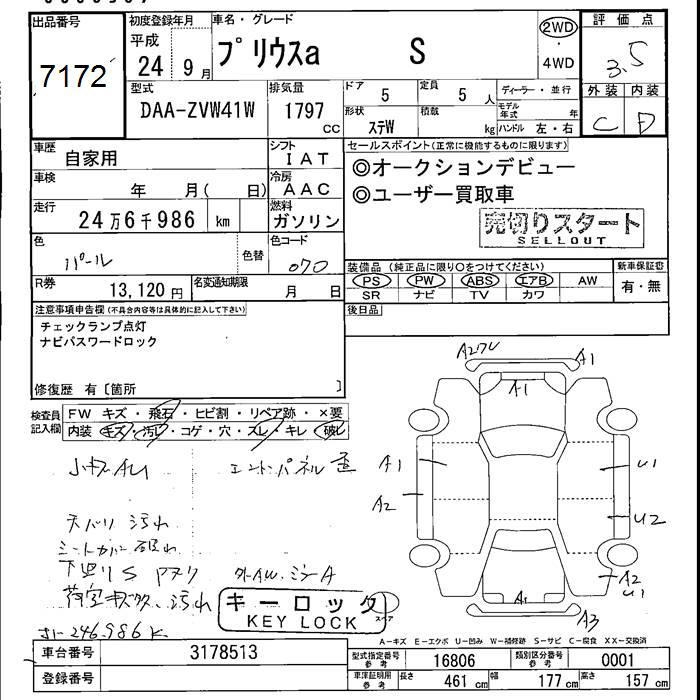 出品番号
7172
初度登録年月
平成
24 9月
車名・グレード
プリウスa S
2WD
・
4WD
評価点
3.5
外装 内装
C D
型式
DAA-ZVW41W
排気量
1797
CC
ドア
5
定員
5 人
ディーラー・並行
形状
ステW
積載
kg
モデル年式 年
ハンドル 左・右
車歴
自家用
シフト
IAT
車検
年 月( 日)
冷房
AAC
走行
24万6千986 km
燃料
ガソリン
色
パール
色替
色コード
070
R券
13,120 円
名変通知期限
月 日
セールスポイント(正常に機能するものに限ります)
◎オークションデビュー
◎ユーザー買取車
売切りスタート
SELLOUT
装備品 (純正品に限り○をつけてください)
新車保証書
PS PW ABS エアB AW
有・無
SR ナビ TV カワ
後日品
注意事項申告欄(不具合内容等は具体的に記入して下さい)
チェックランプ点灯
ナビパスワードロック
修復歴 有[箇所 ]
検査員
記入欄
FW キズ・飛石・ヒビ割・リペア跡・×要
内装 キズ・汚レ・コゲ・穴・スレ・キレ・破レ
小キズAU
エンドパネル 歪
天バリ 汚れ
シートカバー 破れ
下廻りS
外AW.ミラーA
荷室 汚れ
246,986K
キーロック
KEY LOCK
スペア
A1
A1
A1
A2
U1
U2
A2
U1
A1
A3
A-キズ E-エクボ U-凹み W-補修跡 S-サビ C-腐食 XX-交換済
車台番号
3178513
登録番号
型式指定番号
参考
16806
類別区分番号
参考
0001
車庫証明用
参考
長さ
461 cm
幅
177 cm
高さ
157 cm